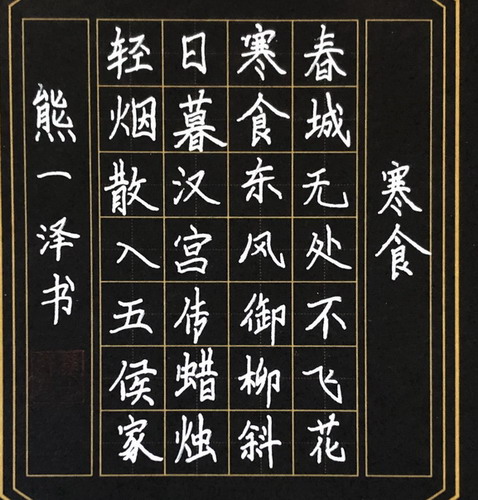 寒食
春城无处不飞花
寒食东风御柳斜
日暮汉宫传蜡烛
轻烟散入五侯家
熊一泽书